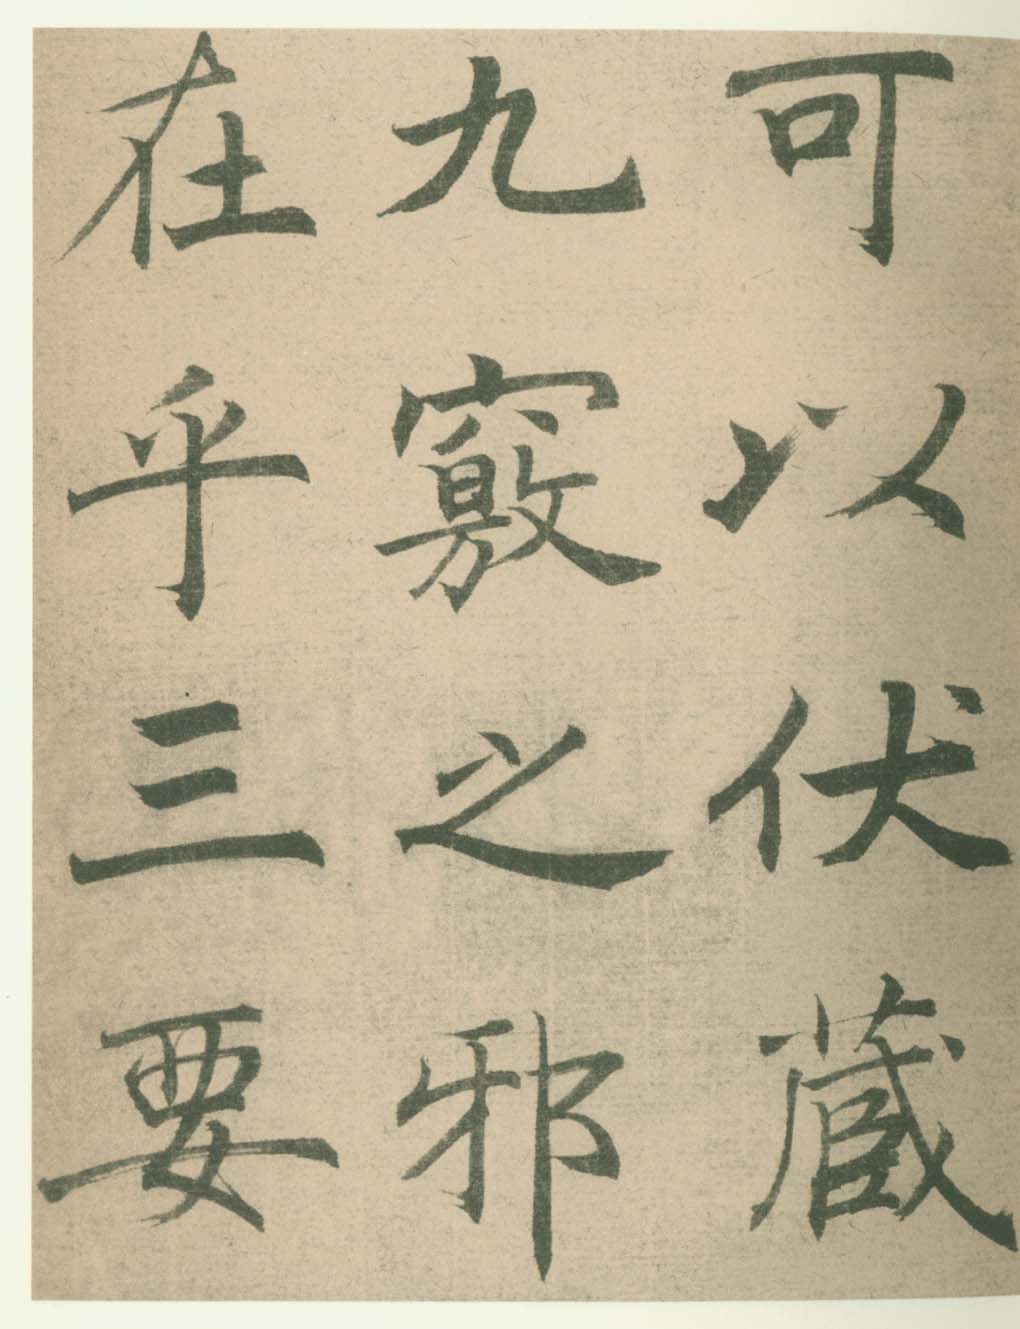 可以伏藏
九竅之邪
在乎三要